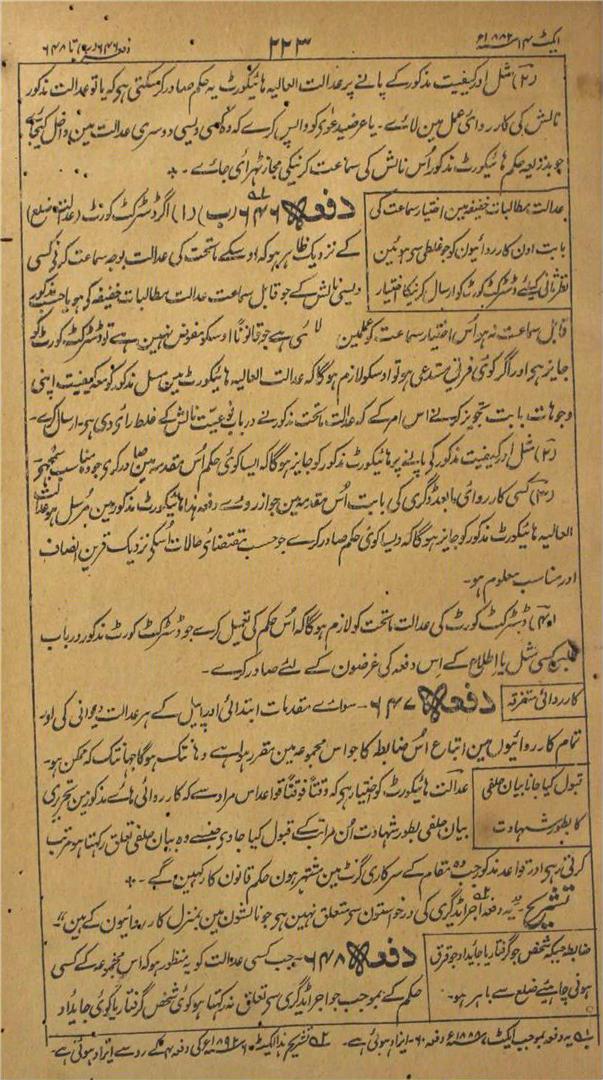 ایکٹ ۱۴ سنہ ۱۸۸۲ء ۲۲۳ دفعہ ۶۴۶ (ب) تا ۶۴۸
(۲) مثل اور کیفیت مذکور کے پانے پر عدالت العالیہ ہائیکورٹ یہ حکم صادر کر سکتی ہی کہ یا تو عدالت مذکور
نالش کی کارروائی عمل مین لائے۔ یا عرضی دعوی کو واپس کرے کہ وہ کسی ویسی دوسری عدالت مین داخل کیجائے
جو بذریعہ حکم ہائیکورٹ مذکور اُس نالش کی سماعت کرنیکی مجاز ٹھہرائی جائے۔
عدالت مطالبات خفیفہ مین اختیار سماعت کی
بابت اون کارروائیون کو جو غلطی سی ہوئین
نظر ثانی کیلئے ڈسٹرکٹ کورٹ کو ارسال کرنیکا اختیار
دفعہ ۶۴۶ (ب) (۱) اگر ڈسٹرکٹ کورٹ (عدالت ضلع)
کے نزدیک ظاہر ہو کہ اوسکے ماتحت کی عدالت بوجہ سماعت کرنی کسی
ویسی نالش کے جو قابل سماعت عدالت مطالبات خفیفہ کی ہو یا حسب مذکورہ
قابل سماعت نہ ہو اُس اختیار سماعت کو عمل مین لائی ہے جو قانوناً اوسکو مفوض نہین ہے تو ڈسٹرکٹ کورٹ کو
جایز ہی اور اگر کوئی فریق مستدعی ہو تو اوسکو لازم ہوگا کہ عدالت العالیہ ہائیکورٹ مین مسل مذکور کو معہ کیفیت اپنی
وجوہات بابت تجویز کرنے اس امر کے کہ عدالت ماتحت مذکور نے درباب نوعیت نالش کے غلط رائی دی ہی۔ ارسال کرے۔
(۲) مثل اور کیفیت مذکور کی پانے پر ہائیکورٹ مذکور کو جایز ہوگا کہ ایسا کوئی حکم اُس مقدمہ مین صادر کری جو وہ مناسب سمجھے
(۳) کسی کارروائی مابعد ڈگری کی بابت اُس مقدمہ مین جو از روے دفعہ ہذا ہائیکورٹ مذکور مین مُرسل ہو عدالت
العالیہ ہائیکورٹ مذکور کو جایز ہوگا کہ ویسا کوئی حکم صادر کرے جو حسب مقتضای حالات اُسکی نزدیک قرین انصاف
اور مناسب معلوم ہو۔
(۴) ڈسٹرکٹ کورٹ کی عدالت ماتحت کو لازم ہوگا کہ اُس حکم کی تعمیل کرے جو ڈسٹرکٹ کورٹ مذکور درباب
کسی مثل یا اطلاع کے اِس دفعہ کی غرضون کے لئے صادر کرے۔
کارروائی متفرقہ
دفعہ ۶۴۷۔ سواے مقدمات ابتدائی اور اپیل کے ہر عدالت دیوانی کی اور
تمام کارروائیون مین اتباع اُس ضابطہ کا جو اس مجموعہ مین مقرر ہوا ہے وہانتک ہوگا جہانتک کہ ممکن ہو۔
قبول کیا جانا بیان حلفی
کا بطور شہادت
عدالت ہائیکورٹ کو اختیار ہی کہ وقتاً فوقتاً قواعد اس مراد سے کہ کارروائی ہائے مذکور مین تحریری
بیان حلفی بطور شہادت اُن مراتب کے قبول کیا جاوی جنسے وہ بیان حلفی تعلق رکھتا ہو مرتب
کرتی رہی اور قواعد مذکور جب مقام کے سرکاری گزٹ مین مشتہر ہون حکم قانون کا رکھین گے۔
تشریح۔ یہ دفعہ اجرا ڈیگری کی درخواستون سی متعلق نہین ہی جو نالشون مین بمنزل کارروائیون کے ہین۔
ضابطہ جبکہ شخص جو گرفتار یا جائیداد جو قرق
ہونی چاہیئے ضلع سے باہر ہو۔
دفعہ ۶۴۸۔ جب کسی عدالت کو یہ منظور ہو کہ اس مجموعہ کے کسی
حکم کے بموجب جو اجرا ڈیگری سی تعلق نہ رکھتا ہو کوئی شخص گرفتار یا کوئی جایداد
۱؎ یہ دفعہ بموجب ایکٹ ۷ سنہ ۱۸۸۸ء دفعہ ۶۰ ایزاد ہوئی ہے۔ ۲؎ تشریح ہذا ایکٹ ۶ سنہ ۱۸۹۲ء کی دفعہ ۴ کے رو سے ایزاد ہوئی ہے۔